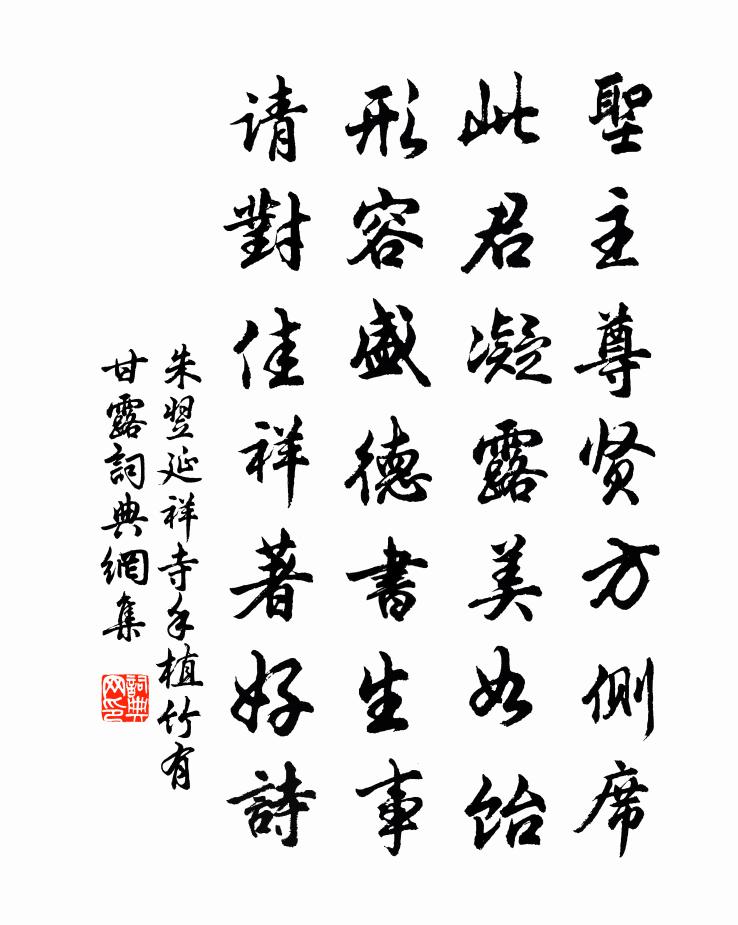 聖主尊贤方側席
此君凝露美如饴
形容盛德書生事
请對佳祥著好詩
朱翌延祥寺手植竹有
甘露詞典網集
詞典
网印